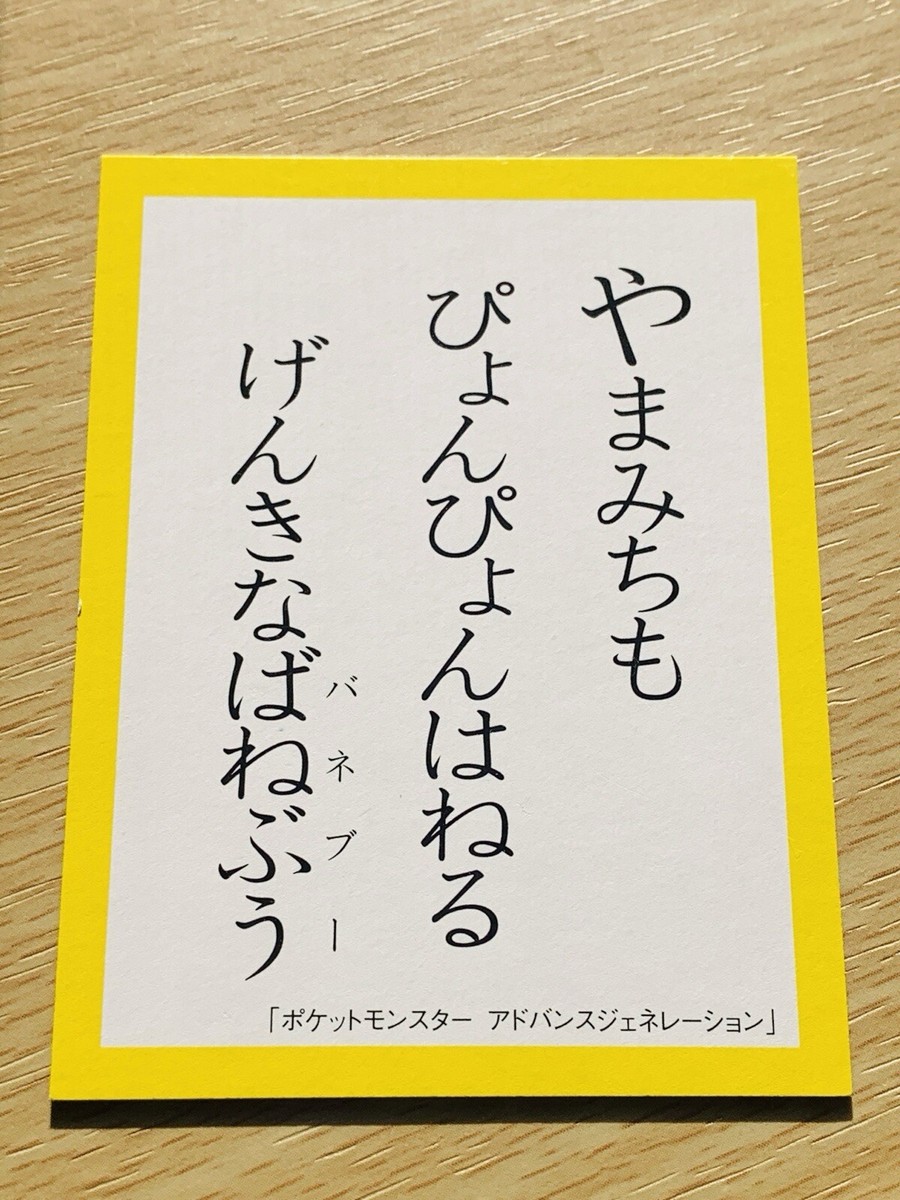 やまみちも
ぴょんぴょんはねる
げんきなばねぶう
バネブー
「ポケットモンスター アドバンスジェネレーション」